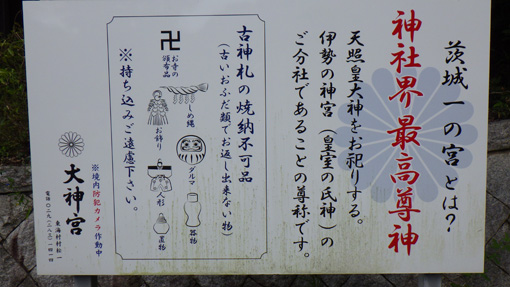 茨城一の宮とは?
神社界最高尊神
天照皇大神をお祀りする。
伊勢の神宮(皇室の氏神)の
ご分社であることの尊称です。
古神札の焼納不可品
(古いおふだ類でお返し出来ない物)
卍
お寺の
頒布品
しめ縄
お飾り
ダルマ
人形
器物
置物
※持ち込みご遠慮下さい。
※境内防犯カメラ作動中
大神宮
東海村村松一